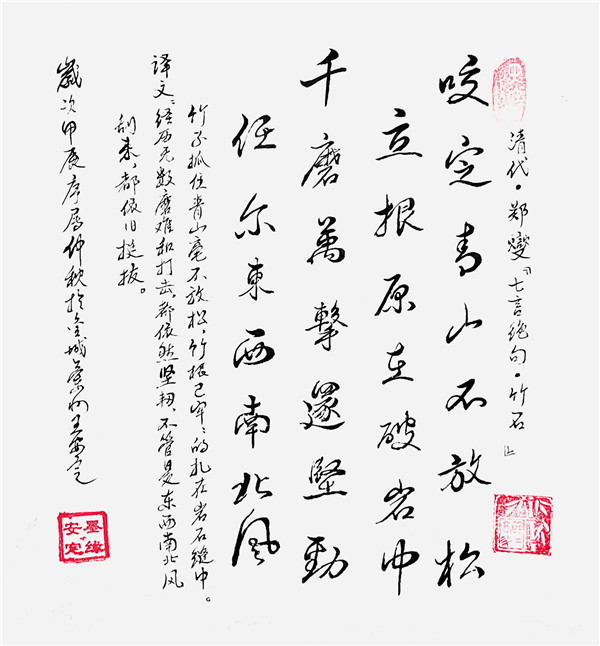 清代·郑燮『七言绝句·竹石』
咬定青山不放松
立根原在破岩中
千磨萬擊還堅勁
任尔東西南北风
竹子抓住青山毫不放松,竹根已牢〻的扎在岩石缝中。
译文:经历无数磨难和打击,都依然坚韧,不管是东西南北风
刮来,都依旧挺拔。
歲次甲辰序属仲秋於金城蘭州王安定
墨缘
安定